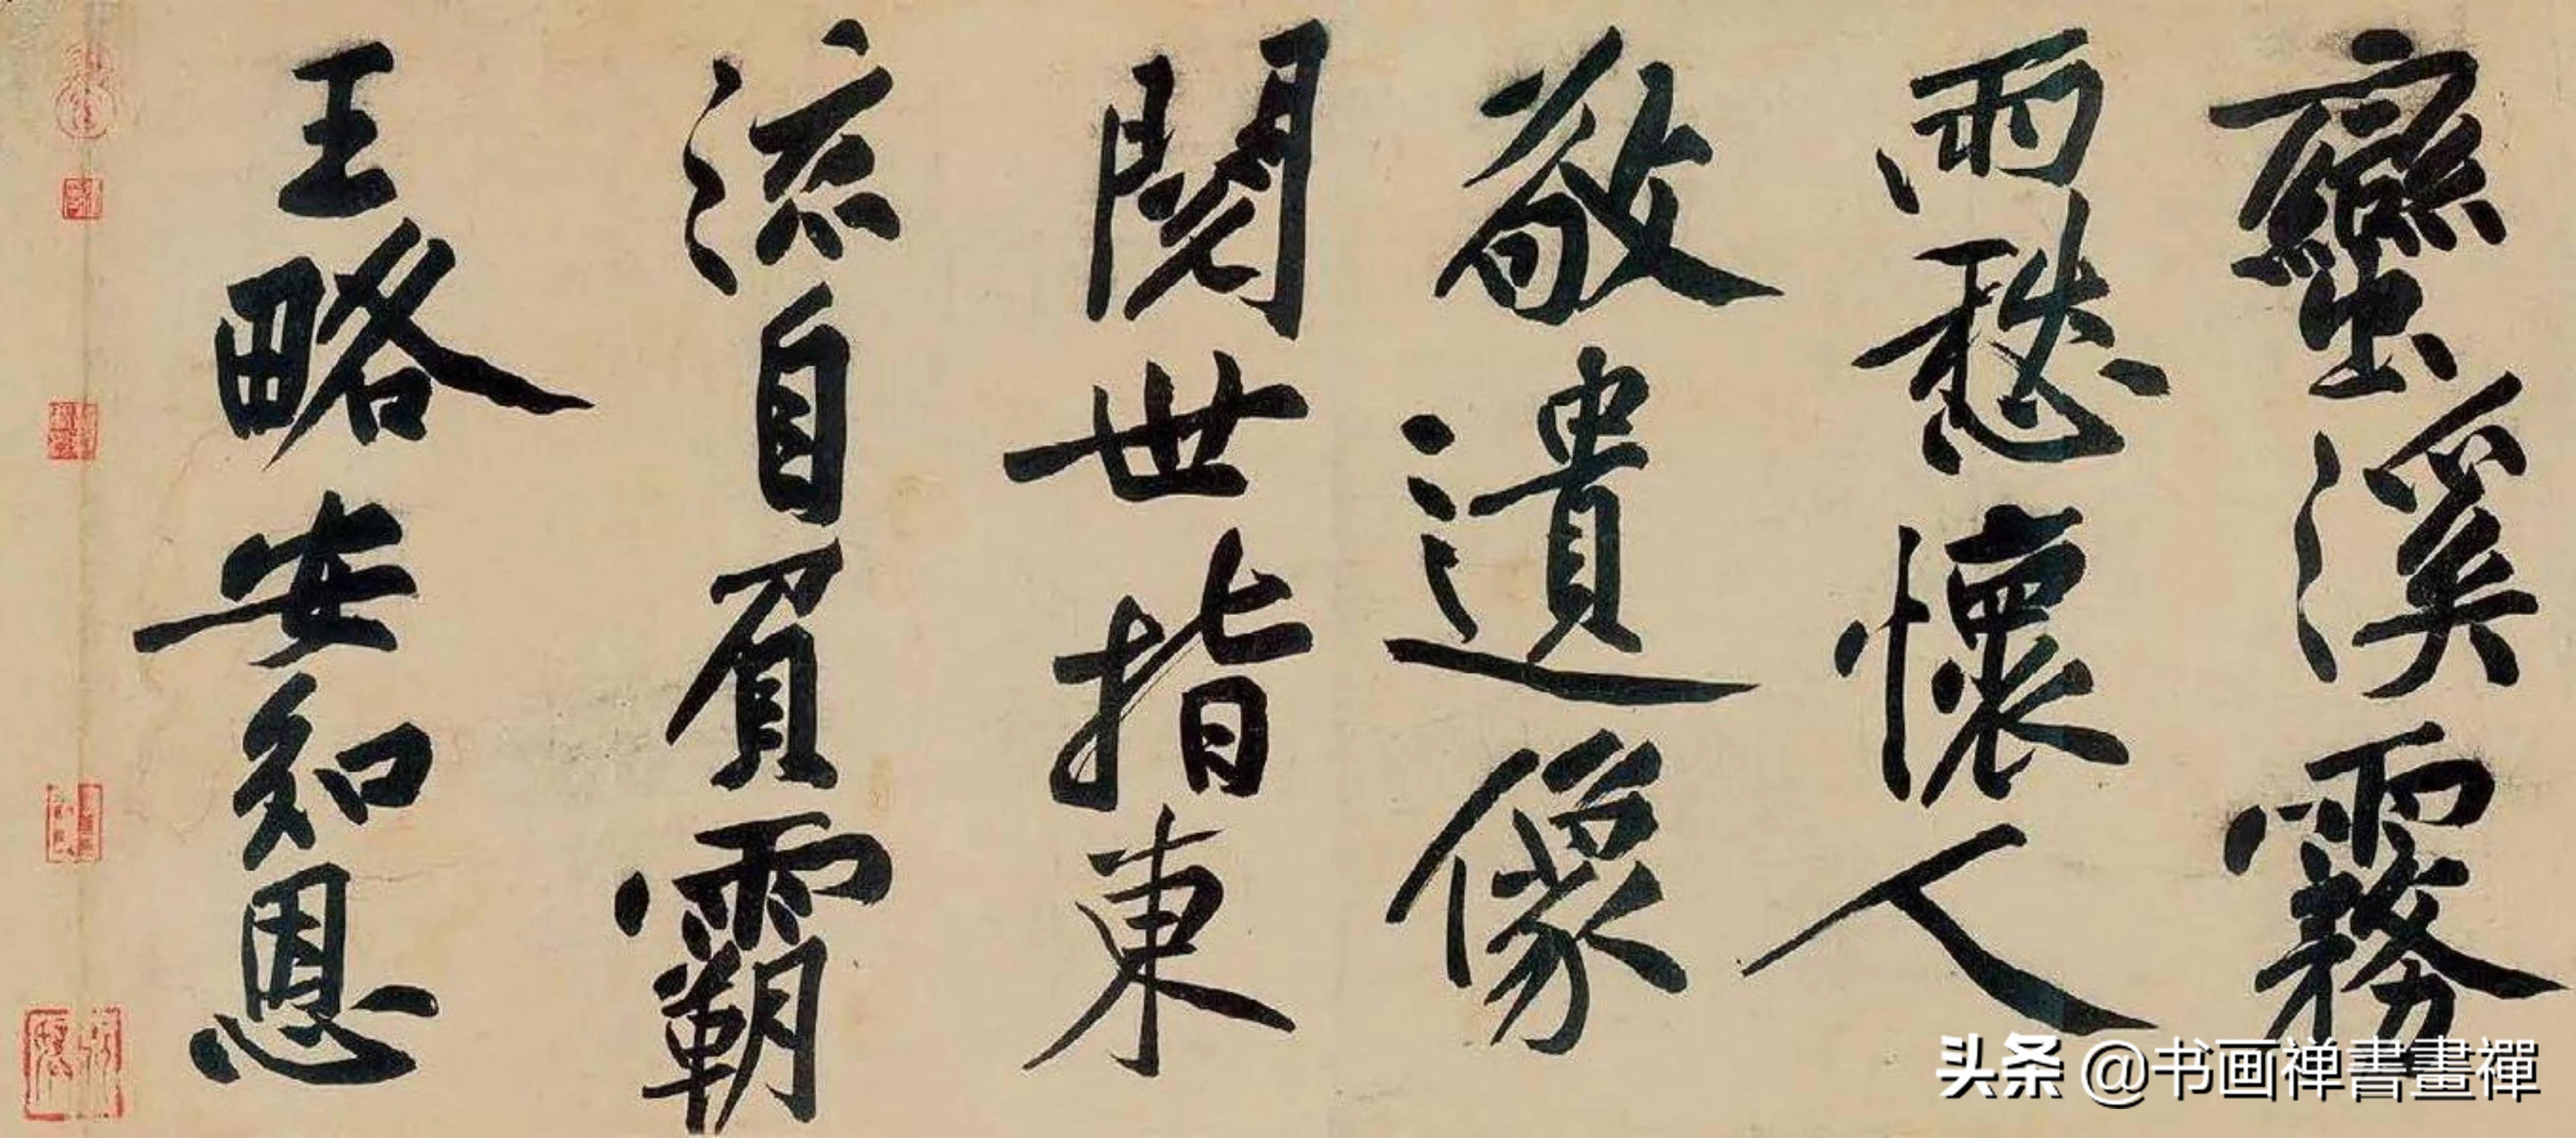 蠻溪霧
雨愁懷人
敬遺像
閱世指東
流自負霸
王略安知恩
头条 @书画禅書畫禪